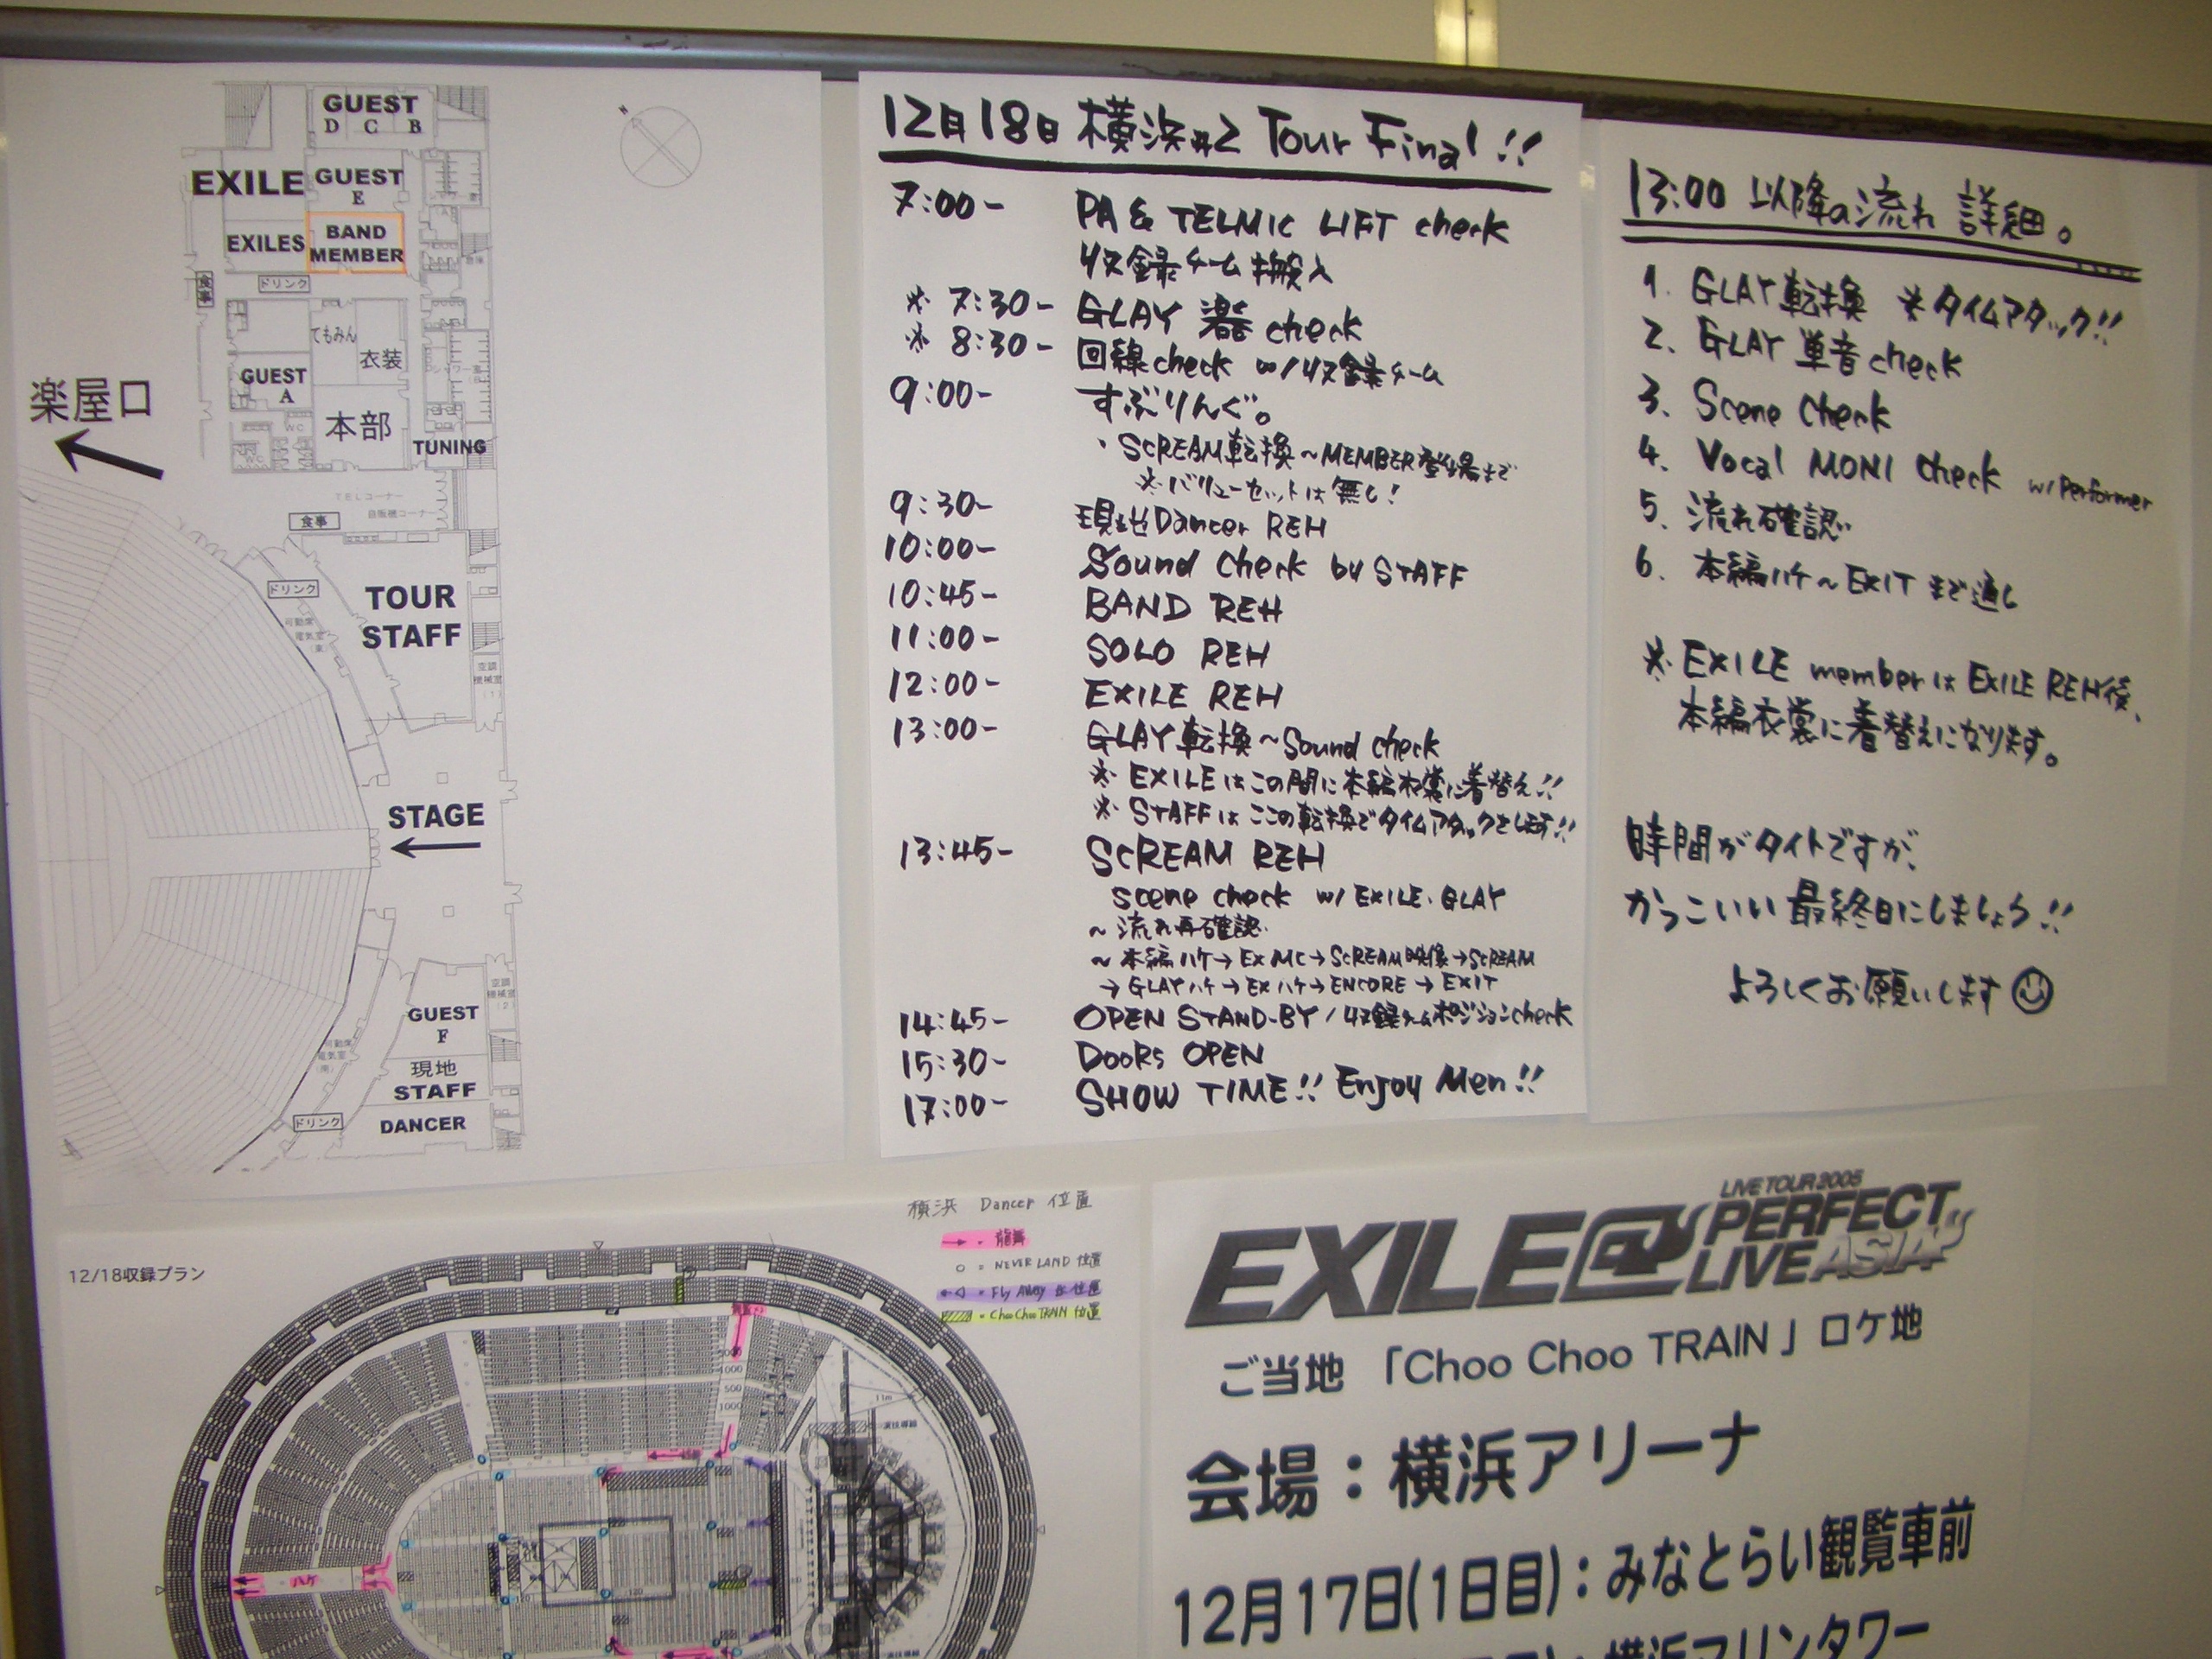 GUEST
D C B
EXILE
GUEST
E
EXILES
BAND
MEMBER
食事
ドリンク
てもみん
衣装
GUEST
A
楽屋口
本部
TUNING
WC
WC
TELコーナー
自販機コーナー
食事
ドリンク
TOUR
STAFF
可動席
電気室
(東)
空調
機械室
(1)
STAGE
空調
機械室
(2)
GUEST
F
可動席
電気室
(南)
現地
STAFF
ドリンク
DANCER
12月18日 横浜#2 Tour Final!!
7:00- PA & TELMIC LIFT check
収録チーム搬入
※ 7:30- GLAY 楽器 check
※ 8:30- 回線check w/収録チーム
9:00- すぷりんぐ。
・SCREAM転換~MEMBER登場まで
※バリューセットは無し!
9:30- 現地Dancer REH
10:00- Sound Check by STAFF
10:45- BAND REH
11:00- SOLO REH
12:00- EXILE REH
13:00- GLAY転換~Sound check
※ EXILEはこの間に本編衣裳に着替え!!
※ STAFFはここの転換でタイムアタックとします!!
13:45- SCREAM REH
scene check w/ EXILE・GLAY
~流れ再確認
~本編ハケ→EX MC→SCREAM映像→SCREAM
→GLAYハケ→EXハケ→ENCORE→EXIT
14:45- OPEN STAND-BY/収録チームポジションcheck
15:30- DOORS OPEN
17:00- SHOW TIME!! Enjoy Men!!
13:00 以降の流れ 詳細。
1. GLAY転換 ※タイムアタック!!
2. GLAY 単音check
3. Scene Check
4. Vocal MONI Check w/Performer
5. 流れ確認
6. 本編ハケ~EXIT まで通し
※EXILE memberはEXILE REH後、
本編衣裳に着替えになります。
時間がタイトですが、
かっこいい最終日にしましょう!!
よろしくお願いします
12/18収録プラン
横浜 Dancer 位置
= NEVER LAND 位置
= Fly Away 位置
= ChooChooTRAIN 位置
500
1000
ハケ
LIVE TOUR 2005
EXILE PERFECT
LIVE ASIA
ご当地 「Choo Choo TRAIN」ロケ地
会場:横浜アリーナ
12月17日(1日目):みなとらい観覧車前
横浜マリンタワー